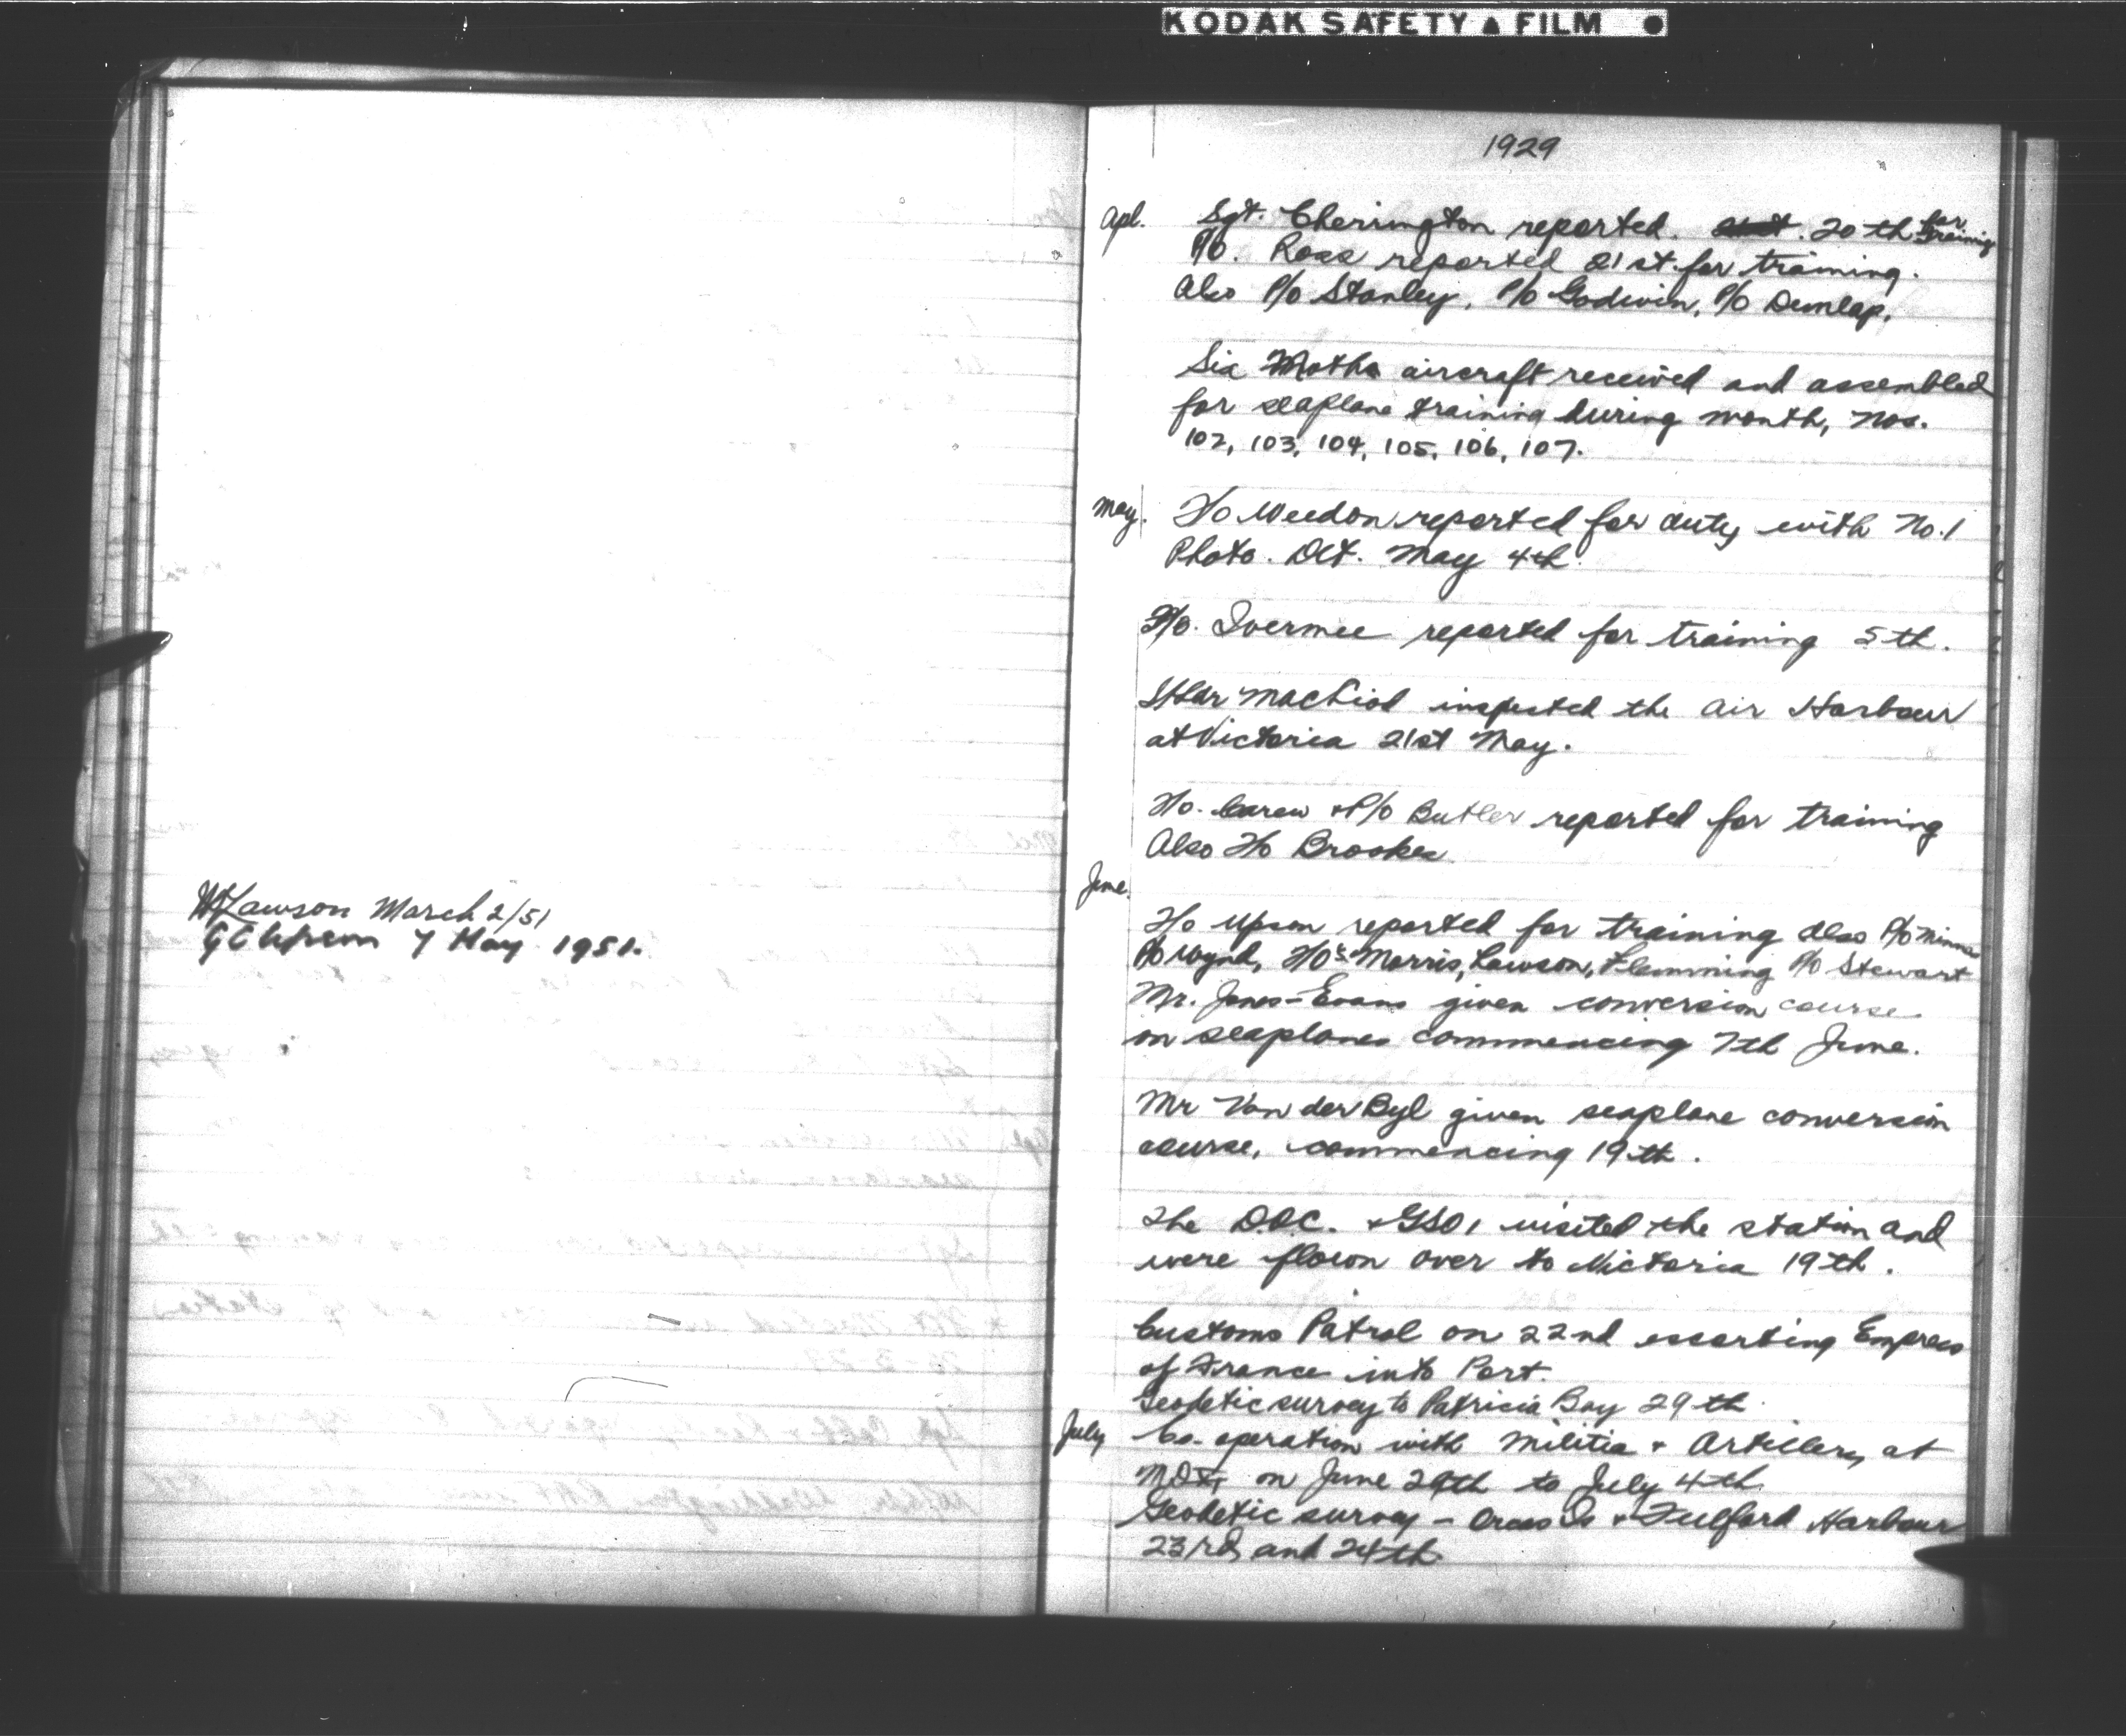 KODAK SAFETY ▲ FILM ●
W Lawson March 2/51
G C Upson 7 May 1951.
1929
Apl. Sgt. Cherrington reported. 20th for training
P/O. Ross reported 21st. for training.
Also P/O Stanley, P/O Godwin, P/O Dunlap,
Six Moths aircraft received and assembled
for seaplane training during month, Nos.
102, 103, 104, 105, 106, 107.
May. F/O Weedon reported for duty with No. 1
Photo. Det. May 4th.
F/O. Ivermee reported for training 5th.
S/Ldr MacLeod inspected the Air Harbour
at Victoria 21st May.
F/O. Carew & P/O Butler reported for training
Also F/O Brookes
June.
F/O Upson reported for training also P/O
P/O Wynd, F/Os Morris, Lawson, Flemming P/O Stewart
Mr. Jones-Evans given conversion course
on seaplanes commencing 7th June.
Mr Van der Byl given seaplane conversion
course, commencing 19th.
The D.O.C. & GSO1 visited the station and
were flown over to Victoria 19th.
Customs Patrol on 22nd escorting Empress
of France into Port.
Geodetic survey to Patricia Bay 29th
July Co-operation with Militia & Artillery at
on June 29th to July 4th.
Geodetic survey - Orcas Is & Fulford Harbour
23rd and 24th.